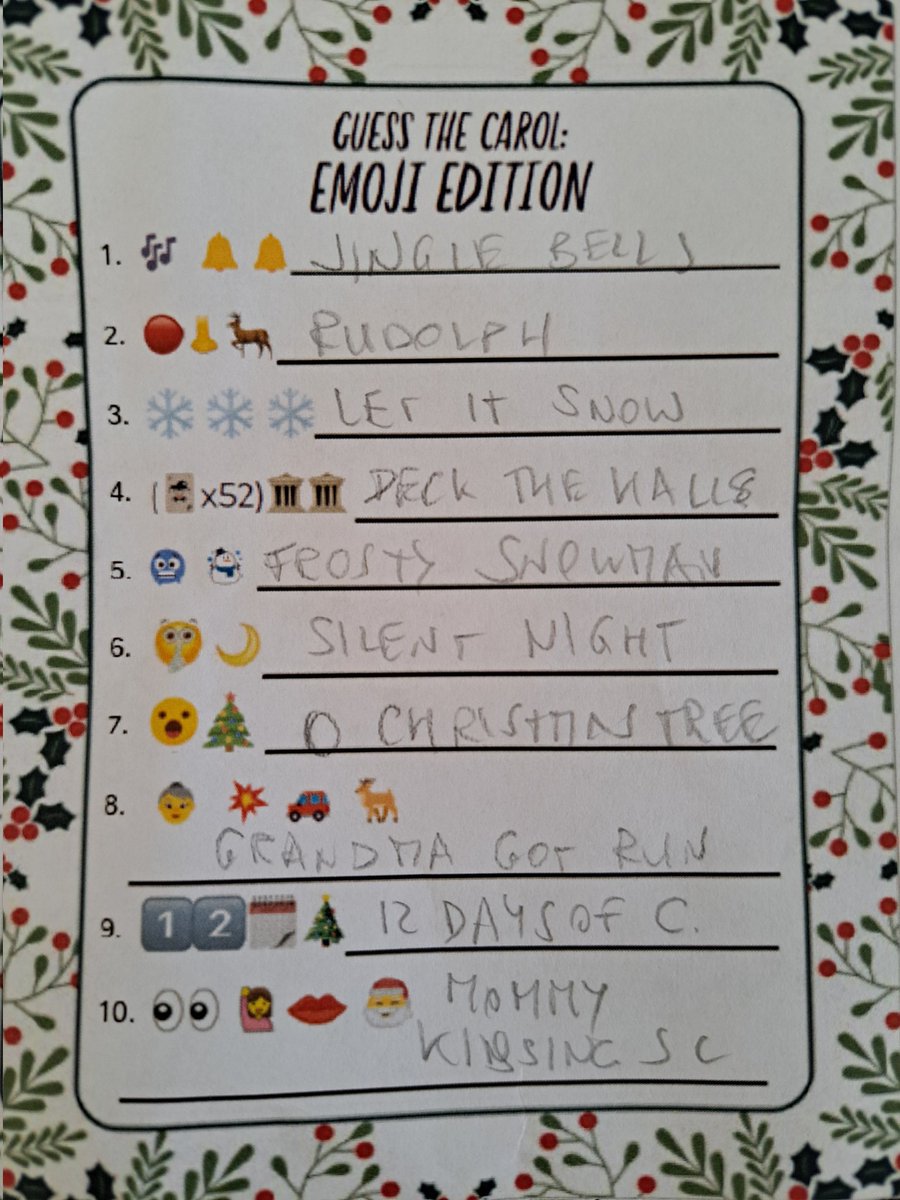 GUESS THE CAROL:
EMOJI EDITION
1. JINGLE BELLS
2. RUDOLPH
3. LET IT SNOW
4. (x52) DECK THE HALLS
5. FROSTY SNOWMAN
6. SILENT NIGHT
7. O CHRISTMAS TREE
8.
GRANDMA GOT RUN
9. 12 12 DAYS OF C.
10. MOMMY
KISSING S C